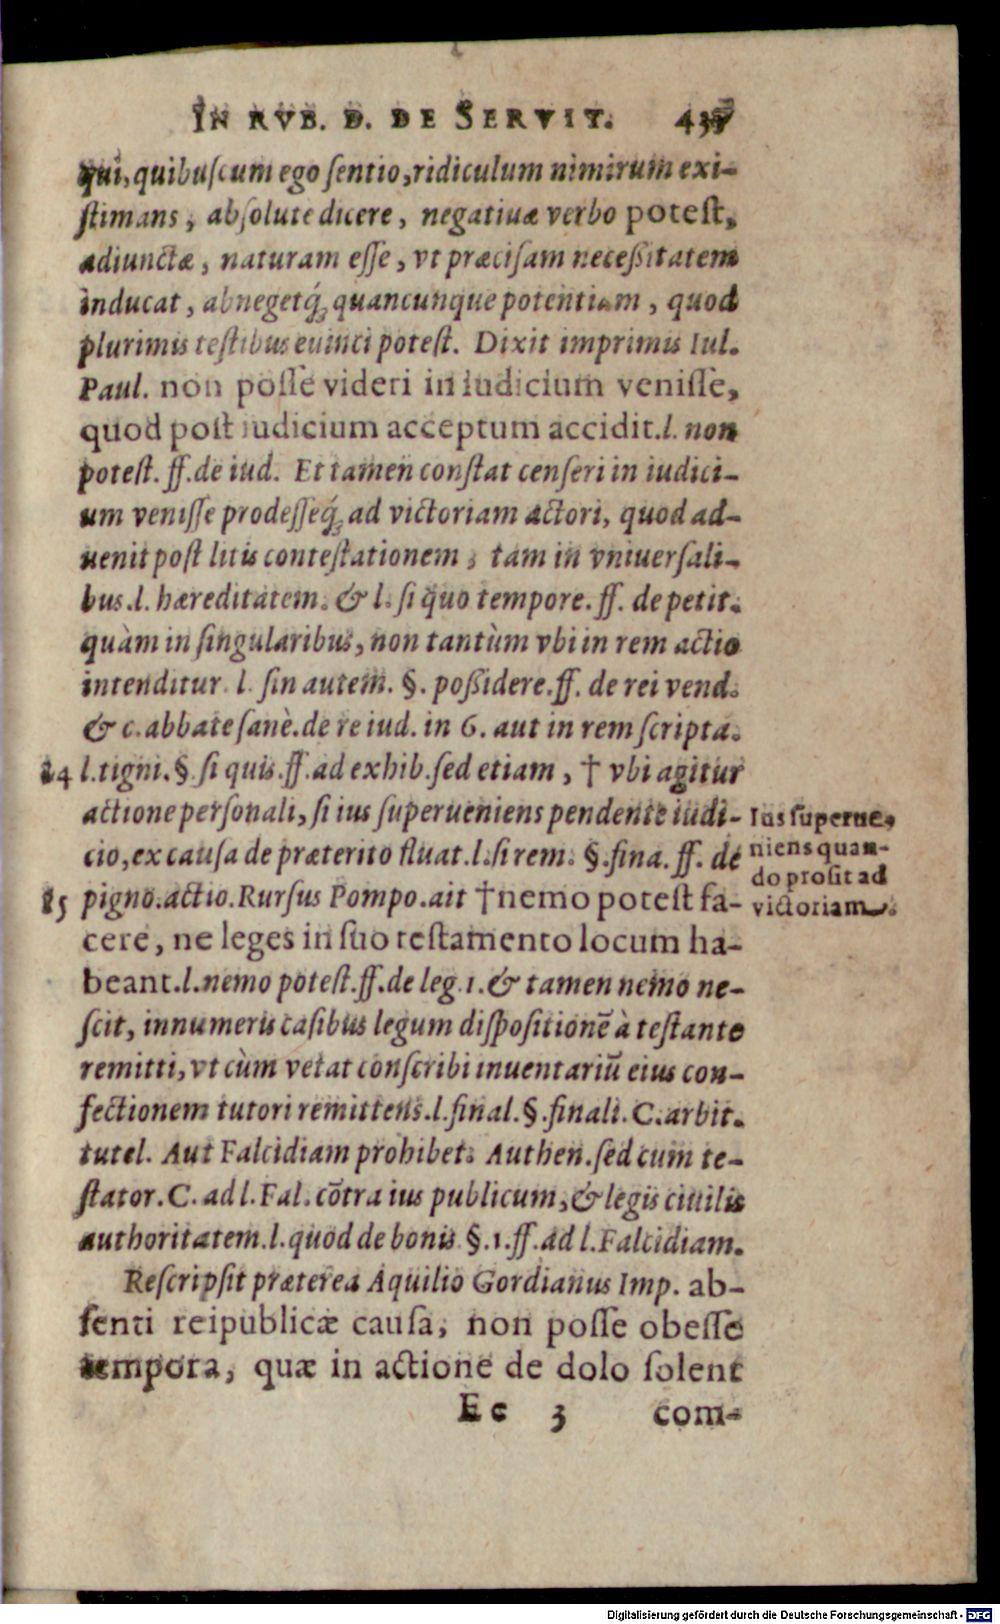 IN RVB. D. DE SERVIT. 437
qui, quibuscum ego sentio, ridiculum nimirum exi-
stimans, absolute dicere, negatiuæ verbo potest,
adiunctæ, naturam esse, vt præcisam necessitatem
inducat, abnegetq́; quancunque potentiam, quod
plurimis testibus euinci potest. Dixit imprimis Iul.
Paul. non posse videri in iudicium venisse,
quod post iudicium acceptum accidit.l. non
potest. ff. de iud. Et tamen constat censeri in iudici-
um venisse prodesseq́; ad victoriam actori, quod ad-
uenit post litis contestationem, tam in vniuersali-
bus.l. hæreditatem. & l. si quo tempore. ff. de petit.
quàm in singularibus, non tantùm vbi in rem actio
intenditur. l. sin autem. §. possidere. ff. de rei vend.
& c. abbate sanè. de re iud. in 6. aut in rem scripta.
24 l. tigni. §. si quis. ff. ad exhib. sed etiam, † vbi agitur
actione personali, si ius superueniens pendente iudi-
cio, ex causa de præterito fluat. l. si rem. §. fina. ff. de
25 pigno. actio. Rursus Pompo. ait † nemo potest fa-
cere, ne leges in suo testamento locum ha-
beant.l. nemo potest. ff. de leg. 1. & tamen nemo ne-
scit, innumeris casibus legum dispositionē à testante
remitti, vt cùm vetat conscribi inuentariū eius con-
fectionem tutori remittens. l. final. §. finali. C. arbit.
tutel. Aut Falcidiam prohibet. Authen. sed cum te-
stator. C. ad l. Fal. cōtra ius publicum, & legis ciuilis
authoritatem. l. quod de bonis §. 1. ff. ad l. Falcidiam.
Rescripsit præterea Aquilio Gordianus Imp. ab-
senti reipublicæ causa, non posse obesse
tempora, quæ in actione de dolo solent
Ee 3 com-
Ius superue-
niens quan-
do prosit ad
victoriam.
Digitalisierung gefördert durch die Deutsche Forschungsgemeinschaft - DFG